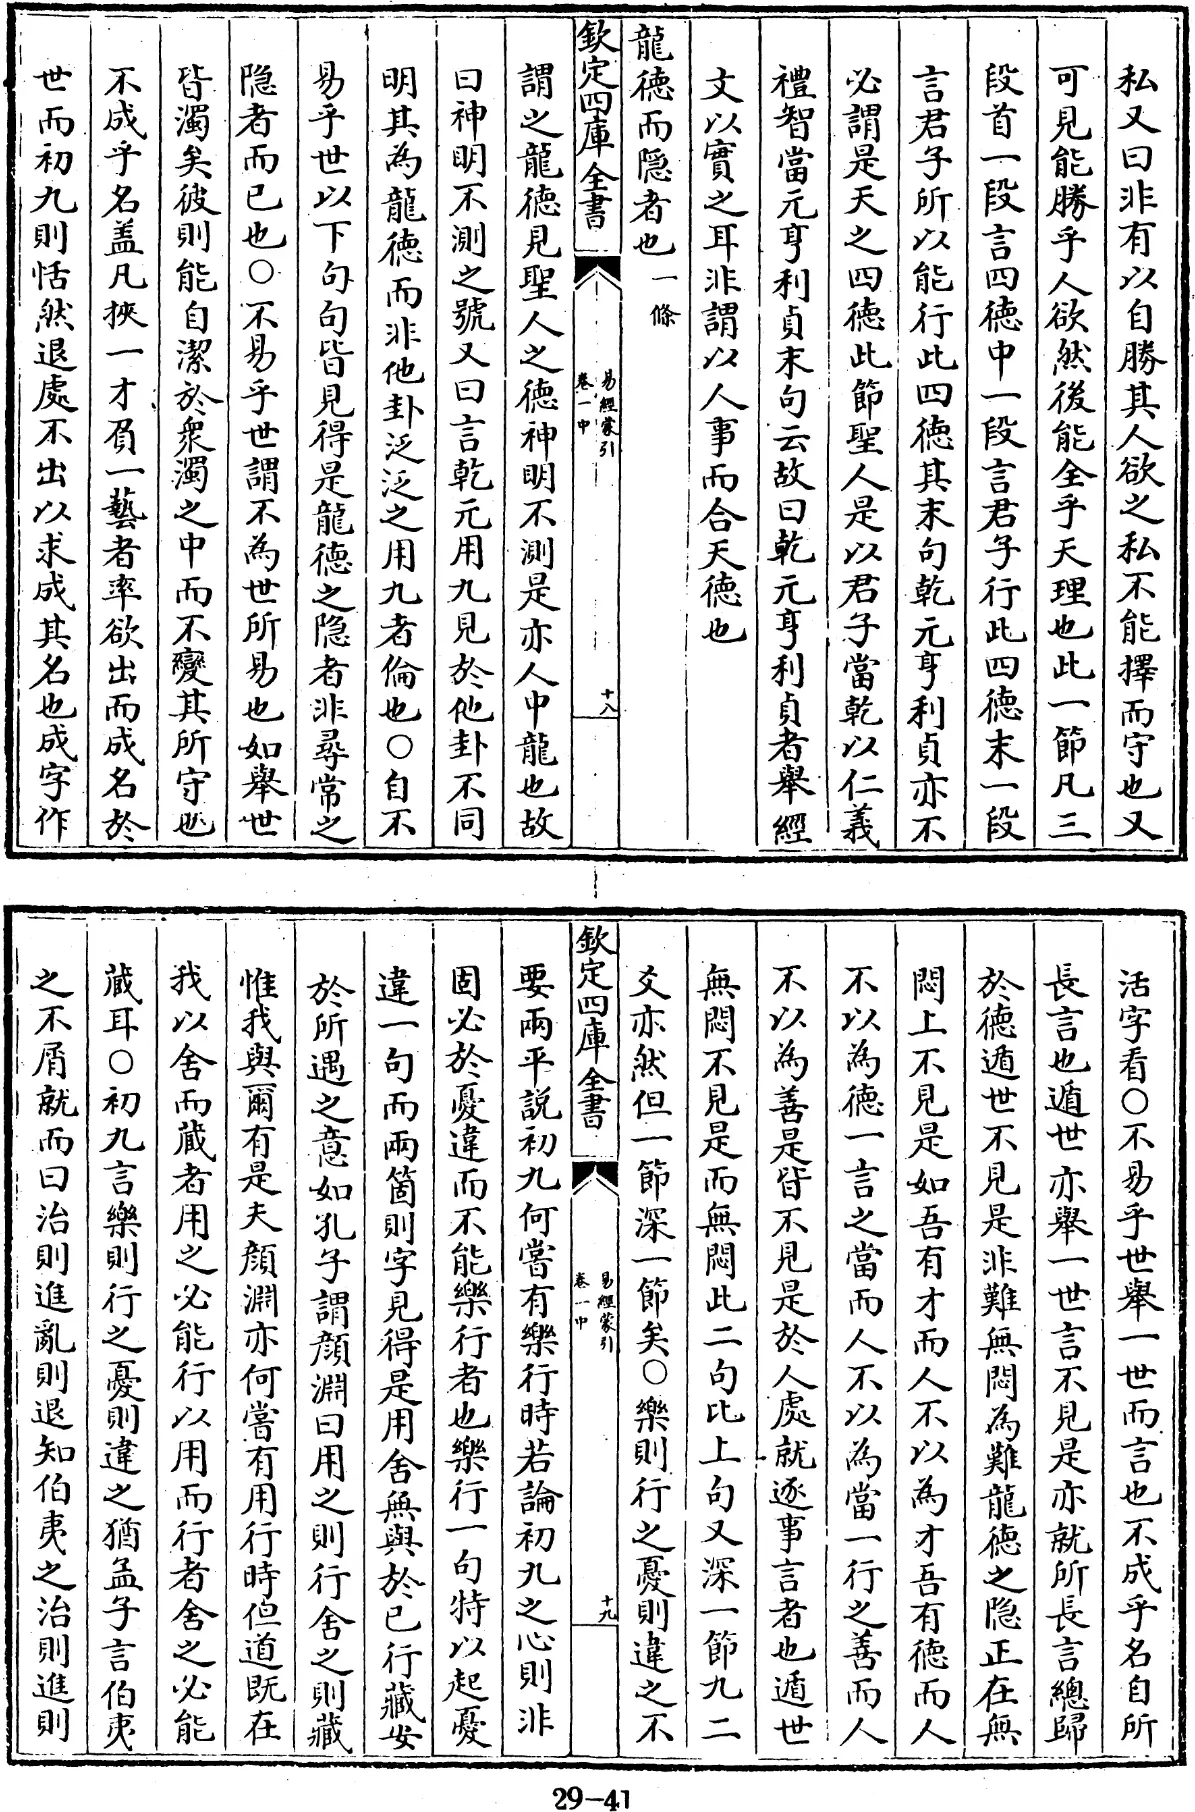 私又曰非有以自勝其人欲之私不能擇而守也又
可見能勝乎人欲然後能全乎天理也此一節凡三
段首一段言四德中一段言君子行此四德末一段
言君子所以能行此四德其末句乾元亨利貞亦不
必謂是天之四德此節聖人是以君子當乾以仁義
禮智當元亨利貞末句云故曰乾元亨利貞者舉經
文以實之耳非謂以人事而合天德也
龍德而隠者也一條
欽定四庫全書
易經蒙引
卷一中
十八
謂之龍德見聖人之德神明不測是亦人中龍也故
曰神明不測之號又曰言乾元用九見於他卦不同
明其為龍德而非他卦泛泛之用九者倫也○自不
易乎世以下句句皆見得是龍德之隠者非尋常之
隠者而已也○不易乎世謂不為世所易也如舉世
皆濁矣彼則能自潔於衆濁之中而不變其所守也
不成乎名盖凡挾一才負一藝者率欲出而成名於
世而初九則恬然退處不出以求成其名也成字作
活字看○不易乎世舉一世而言也不成乎名自所
長言也遁世亦舉一世言不見是亦就所長言總歸
於德遁世不見是非難無悶為難龍德之隠正在無
悶上不見是如吾有才而人不以為才吾有德而人
不以為德一言之當而人不以為當一行之善而人
不以為善是皆不見是於人處就逐事言者也遁世
無悶不見是而無悶此二句比上句又深一節九二
爻亦然但一節深一節矣○樂則行之憂則違之不
欽定四庫全書
易經蒙引
卷一中
十九
要兩平説初九何嘗有樂行時若論初九之心則非
固必於憂違而不能樂行者也樂行一句特以起憂
違一句而兩箇則字見得是用舍無與於已行藏安
於所遇之意如孔子謂顏淵曰用之則行舍之則藏
惟我與爾有是夫顏淵亦何嘗有用行時但道既在
我以舍而藏者用之必能行以用而行者舍之必能
藏耳○初九言樂則行之憂則違之猶孟子言伯夷
之不屑就而曰治則進亂則退知伯夷之治則進則
29-41